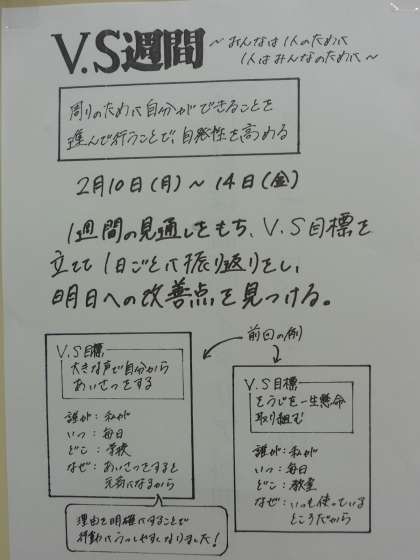 V.S週間
～みんなは1人のために
1人はみんなのために～
周りのために自分ができることを
進んで行うことで、自発性を高める
2月10日(月)～14日(金)
1週間の見通しをもち、V.S目標を
立てて1日ごとに振り返りをし、
明日への改善点を見つける。
前回の例
V.S目標
大きな声で自分から
あいさつをする
誰が：私が
いつ：毎日
どこ：学校
なぜ：あいさつをすると
元気になるから
理由を明確にすることで
行動にうつしやすくなりました！
V.S目標
そうじを一生懸命
取り組む
誰が：私が
いつ：毎日
どこ：教室
なぜ：いつも使っている
ところだから